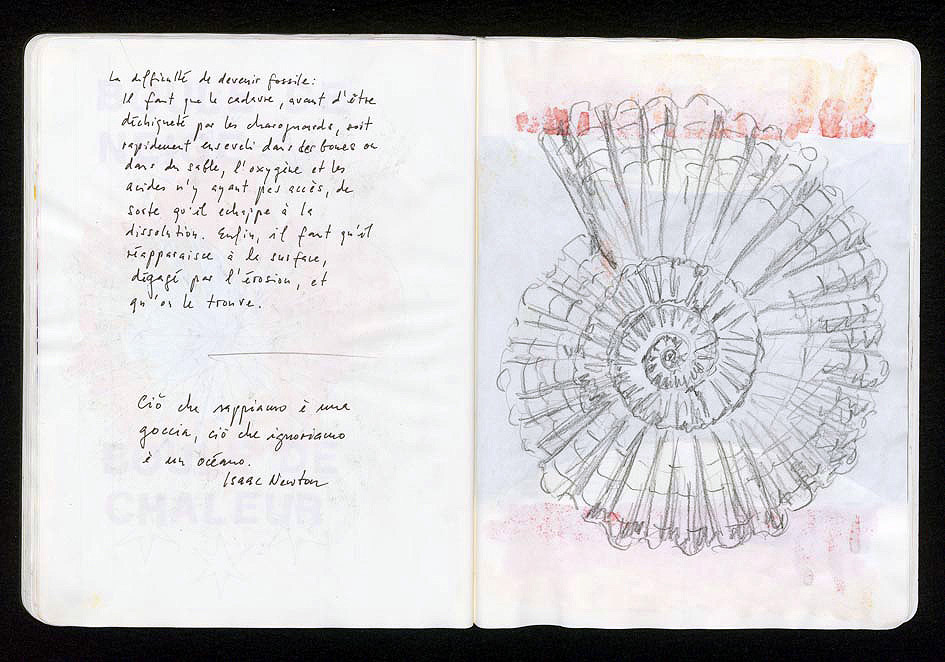 La difficulté de devenir fossile:
Il faut que le cadavre, avant d'être
déchiqueté par les charognards, soit
rapidement enseveli dans des boues ou
dans du sable, l'oxygène et les
acides n'y ayant pas accès, de
sorte qu'il echappe à la
dissolution. Enfin, il faut qu'il
réapparaisse à la surface,
dégagé par l'érosion, et
qu'on le trouve.
Ciò che sappiamo è una
goccia, ciò che ignoriamo
è un océano.
Isaac Newton
DE
CHALEUR